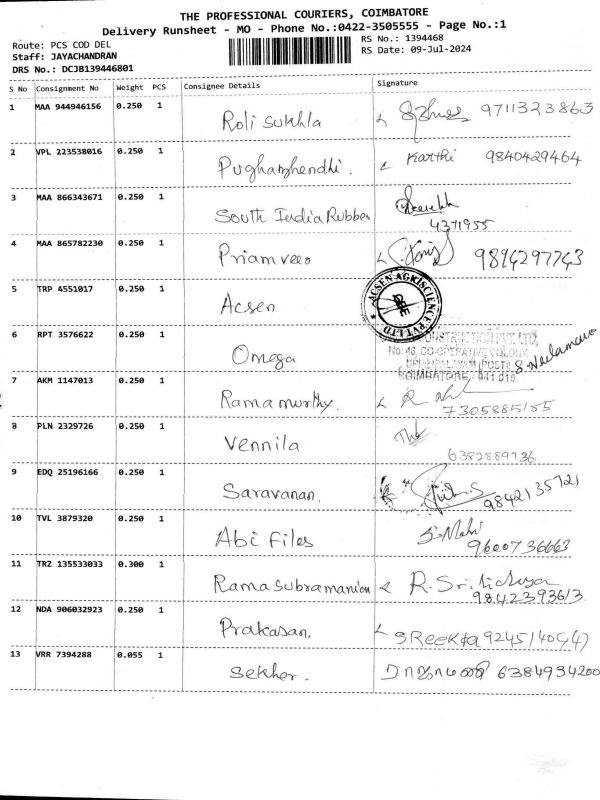 THE PROFESSIONAL COURIERS, COIMBATORE
Delivery Runsheet - MO - Phone No.:0422-3505555 - Page No.:1
Route: PCS COD DEL
Staff: JAYACHANDRAN
DRS No.: DCJB139446801
RS No.: 1394468
RS Date: 09-Jul-2024
S No Consignment No Weight PCS Consignee Details Signature
1 MAA 944946156 0.250 1 Roli Sukhla 9711323863
2 VPL 223538016 0.250 1 Pughazhendhi. Karthi 9840429464
3 MAA 866343671 0.250 1 South India Rubber 4371955
4 MAA 865782230 0.250 1 Priamveo 9894297743
5 TRP 4551017 0.250 1 Acsen
ACSEN AGRISCIENCE PVT LTD
6 RPT 3576622 0.250 1 Omega
CONSTRUCTION PVT. LTD,
No: 46, CO-OPERATIVE COLONY,
UPPILIPALAYAM (POST),
COIMBATORE, 641 015.
7 AKM 1147013 0.250 1 Ramamurthy. 7305885155
8 PLN 2329726 0.250 1 Vennila 6382889736
9 EDQ 25196166 0.250 1 Saravanan. 9842135721
10 TVL 3879320 0.250 1 Abi Files S. Mahi 9600736663
11 TRZ 135533033 0.300 1 Ramasubramanian R. Sri. 9842393613
12 NDA 906032923 0.250 1 Prakasan. SReekha
13 VRR 7394288 0.055 1 Sekher. ராஜாமணி 6384934200